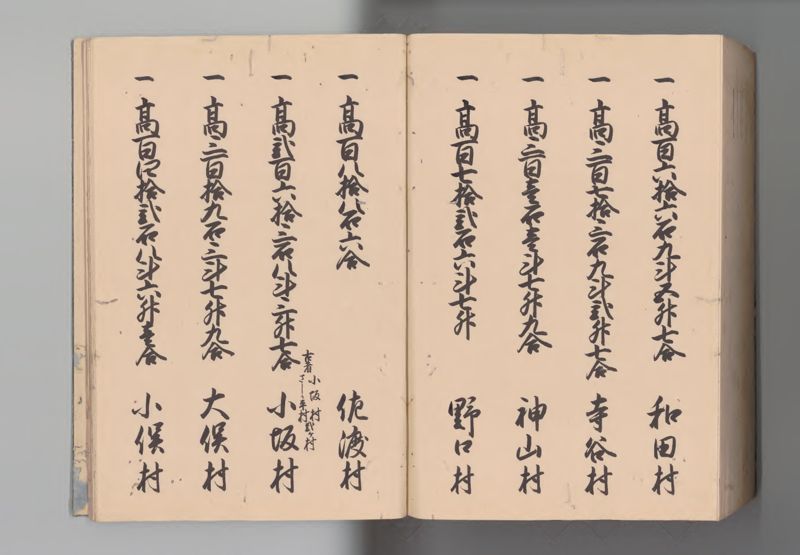 一 高百六拾六石九斗五升七合 和田村
一 高三百七拾三石九斗弐升七合 寺谷村
一 高三百壱石壱斗七升九合 神山村
一 高百七拾弐石六斗七升 野口村
一 高百八拾八石六合 佐渡村
古者小坂村弐ケ村
一 高弐百六拾三石八斗三升七合 小坂村
一 高三百拾九石三斗七升九合 大俣村
一 高百四拾弐石八斗六升壱合 小俣村